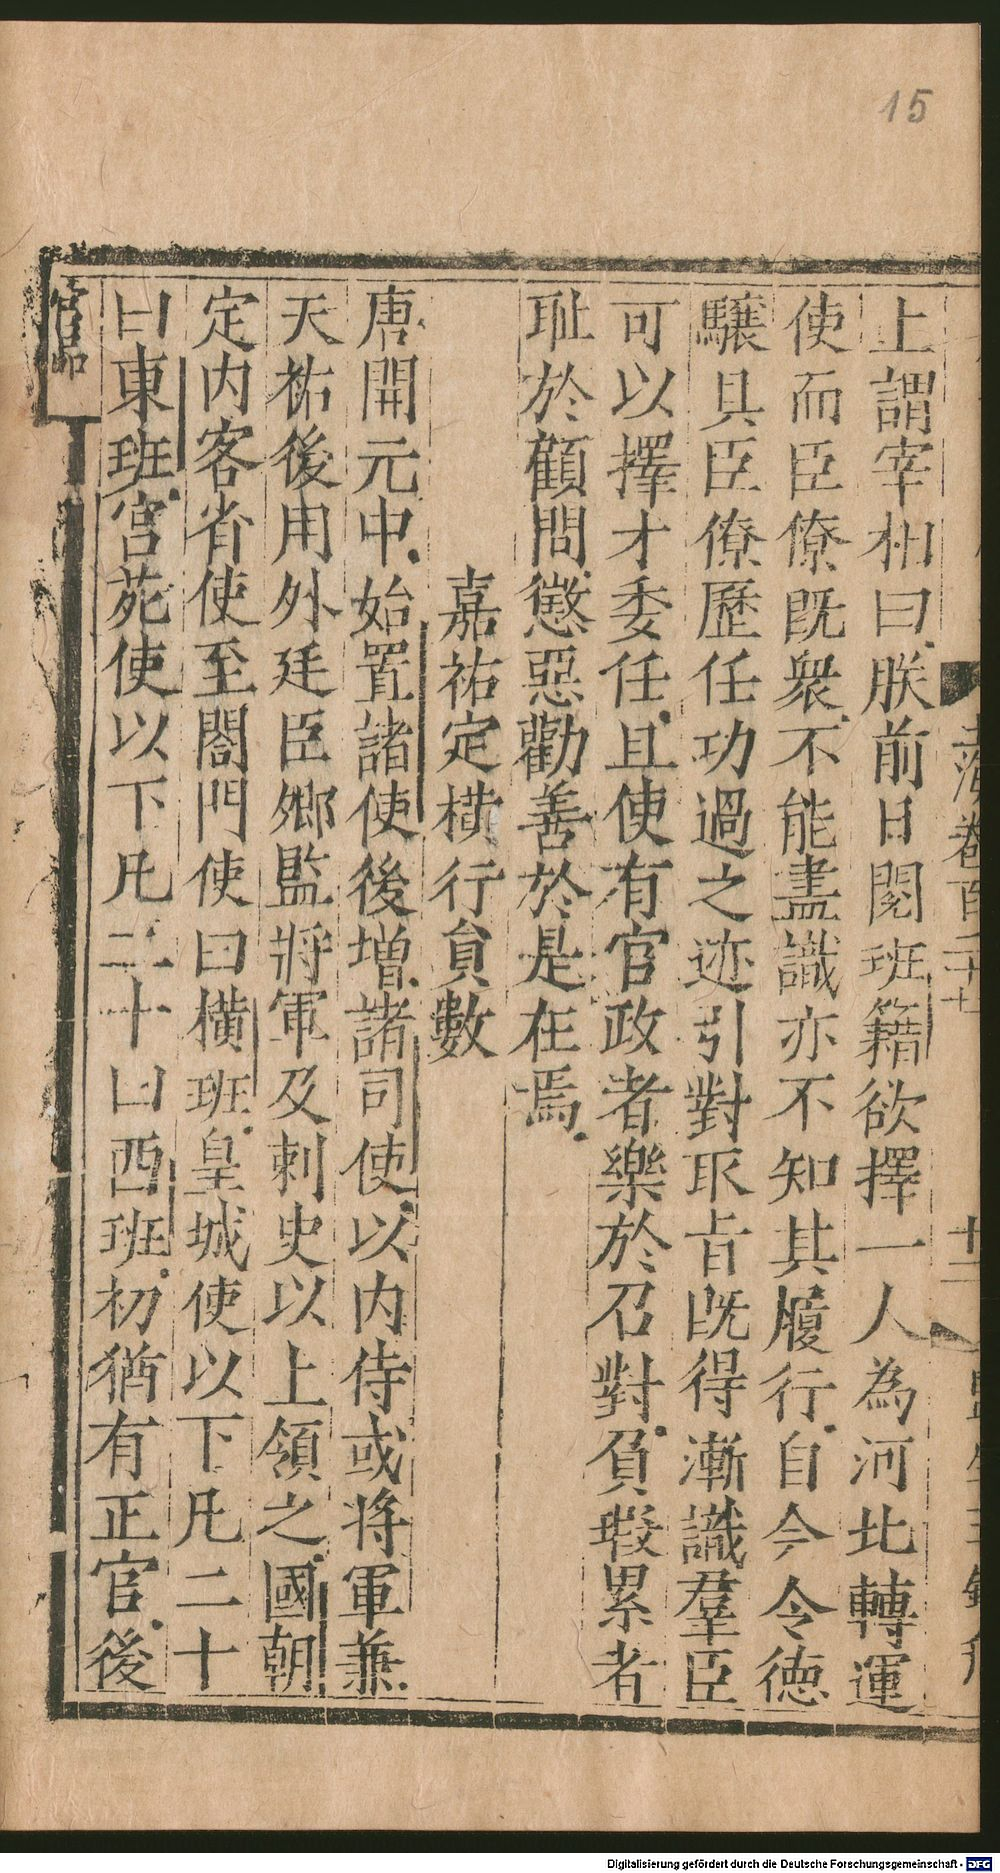 15
上謂宰相曰朕前日閱班籍欲擇一人為河北轉運
使而臣僚既衆不能盡識亦不知其履行自今令德
驤具臣僚歷任功過之迹引對取旨既得漸識羣臣
可以擇才委任且使有官政者樂於召對負瑕累者
耻於顧問懲惡勸善於是在焉
嘉祐定橫行員數
唐開元中始置諸使後增諸司使以内侍或将軍兼
天祐後用外廷臣鄉監將軍及刺史以上領之國朝
定内客省使至閤門使曰橫班皇城使以下凡二十
曰東班宫苑使以下凡二十曰西班初猶有正官後
Digitalisierung gefördert durch die Deutsche Forschungsgemeinschaft - DFG